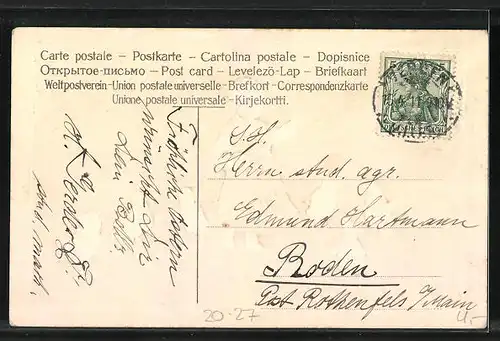 Carte postale – Postkarte – Cartolina postale – Dopisnice
Открытое-письмо – Post card – Levelezö-Lap – Briefkaart
Weltpostverein - Union postale universelle - Brefkort - Correspondenzkarte
Unione postale universale - Kirjekortti.
Fröhliche Ostern
wünscht Dir
Dein
stud. math.
Herrn stud. agr.
Edmund Hartmann
Roden
Pst Rothenfels a/Main
20-27
4,-